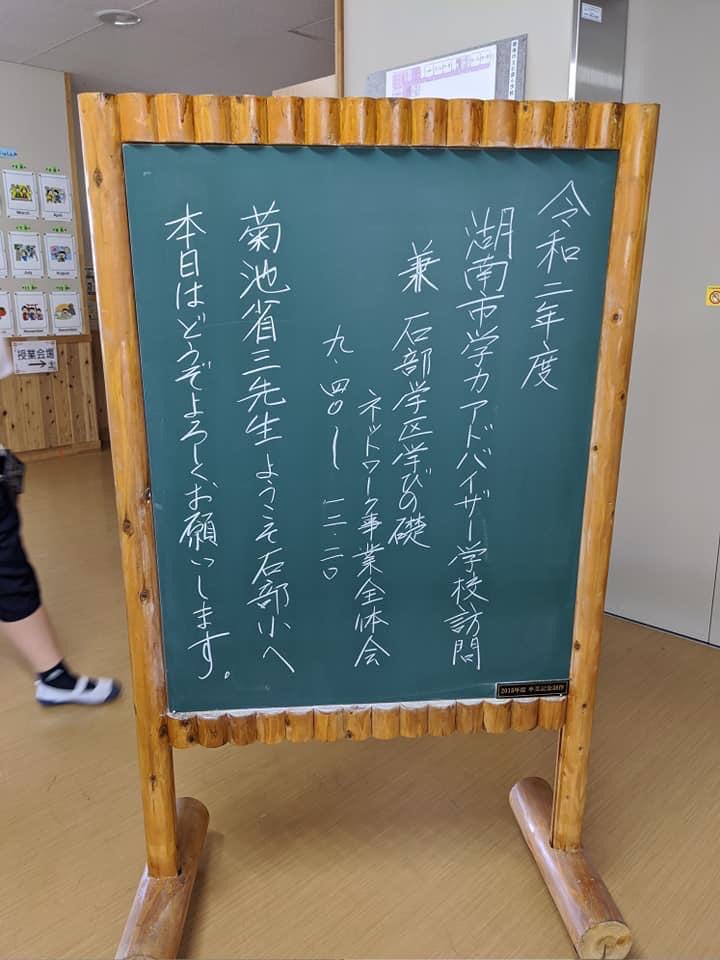 令和二年度
湖南市学力アドバイザー学校訪問
兼 石部学区学びの礎
ネットワーク事業全体会
九・四〇〜一二・二〇
菊池省三先生ようこそ石部小へ
本日はどうぞよろしくお願いします。
2015年度 卒業記念制作
授業会場
→
March
April
July
August
November
December